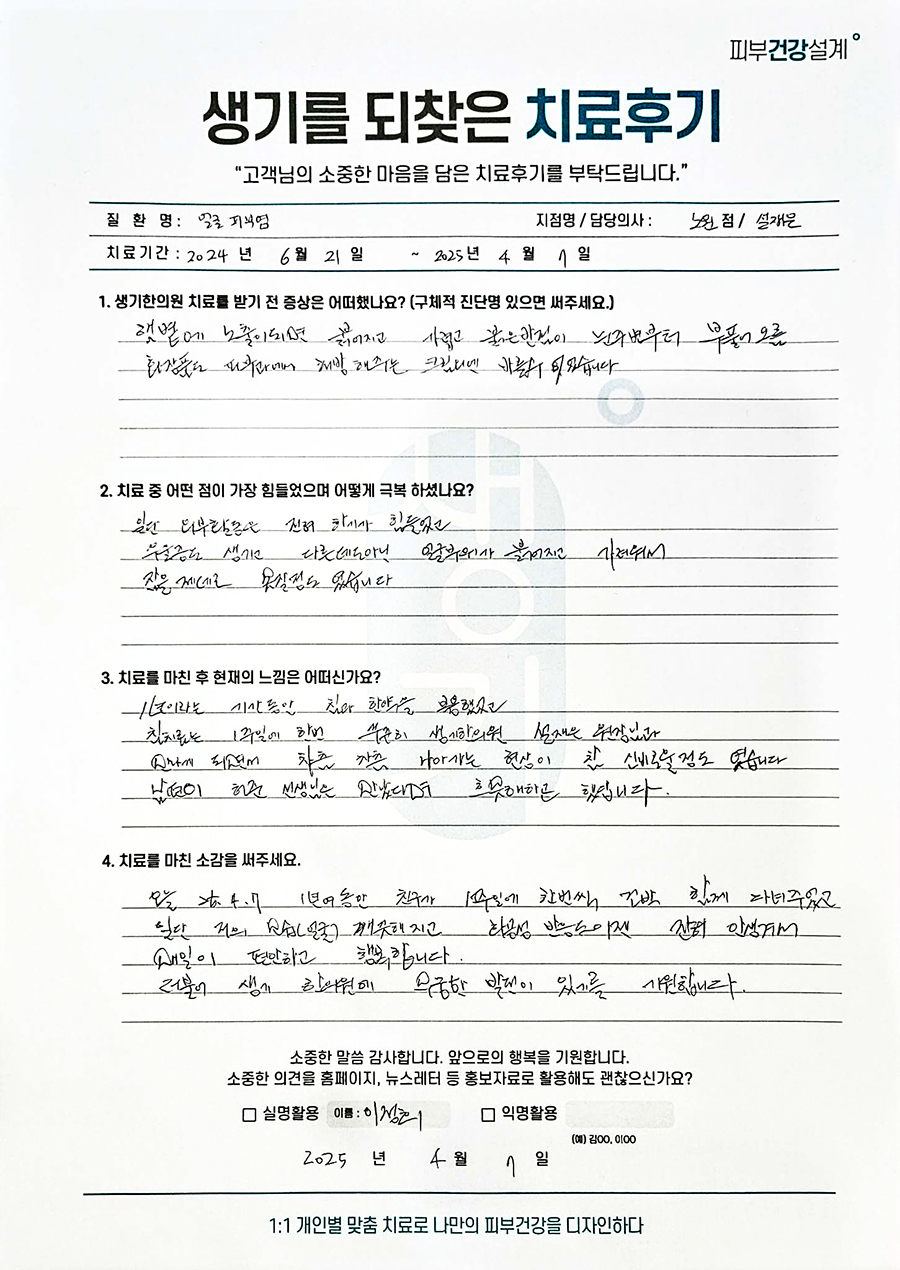 피부건강설계
생기를 되찾은 치료후기
“고객님의 소중한 마음을 담은 치료후기를 부탁드립니다.”
질 환 명: 얼굴 피부염 지점명 / 담당의사 : 노원 점 / 설재은
치료기간 : 2024 년 6 월 21 일 ~ 2025 년 4 월 7 일
1. 생기한의원 치료를 받기 전 증상은 어떠했나요? (구체적 진단명 있으면 써주세요.)
햇볕에 노출이되면 붉어지고 가렵고 붉은반점이 눈주변부터 부풀어 오름
화장품도 피부과에서 처방해주는 크림외엔 바를수 없었습니다
2. 치료 중 어떤 점이 가장 힘들었으며 어떻게 극복 하셨나요?
일단 외부활동은 전혀 하기가 힘들었고
우울증도 생기고 다른데도아닌 얼굴부위가 붉어지고 가려워서
잠을 제대로 못잘정도 였습니다
3. 치료를 마친 후 현재의 느낌은 어떠신가요?
1년이라는 기간동안 침과 한약을 복용했었고
침치료는 1주일에 한번 꾸준히 생기한의원 설재은 원장님과
만나게 되면서 차츰 차츰 나아가는 현상이 참 신비로울정도 였습니다
남편이 허준 선생님을 만났다며 흐뭇해하고 했습니다.
4. 치료를 마친 소감을 써주세요.
오늘 25. 4. 7 1년여동안 친구가 1주일에 한번씩, 함께 다녀주었고
일단 저의 모습(얼굴) 깨끗해지고 화끈성 반응도이젠 전혀 안생겨서
매일이 편안하고 행복합니다.
더불어 생기 한의원에 무궁한 발전이 있기를 기원합니다.
소중한 말씀 감사합니다. 앞으로의 행복을 기원합니다.
소중한 의견을 홈페이지, 뉴스레터 등 홍보자료로 활용해도 괜찮으신가요?
□ 실명활용 이름 : □ 익명활용
(예) 김OO, 이OO
2025 년 4 월 7 일
1:1 개인별 맞춤 치료로 나만의 피부건강을 디자인하다